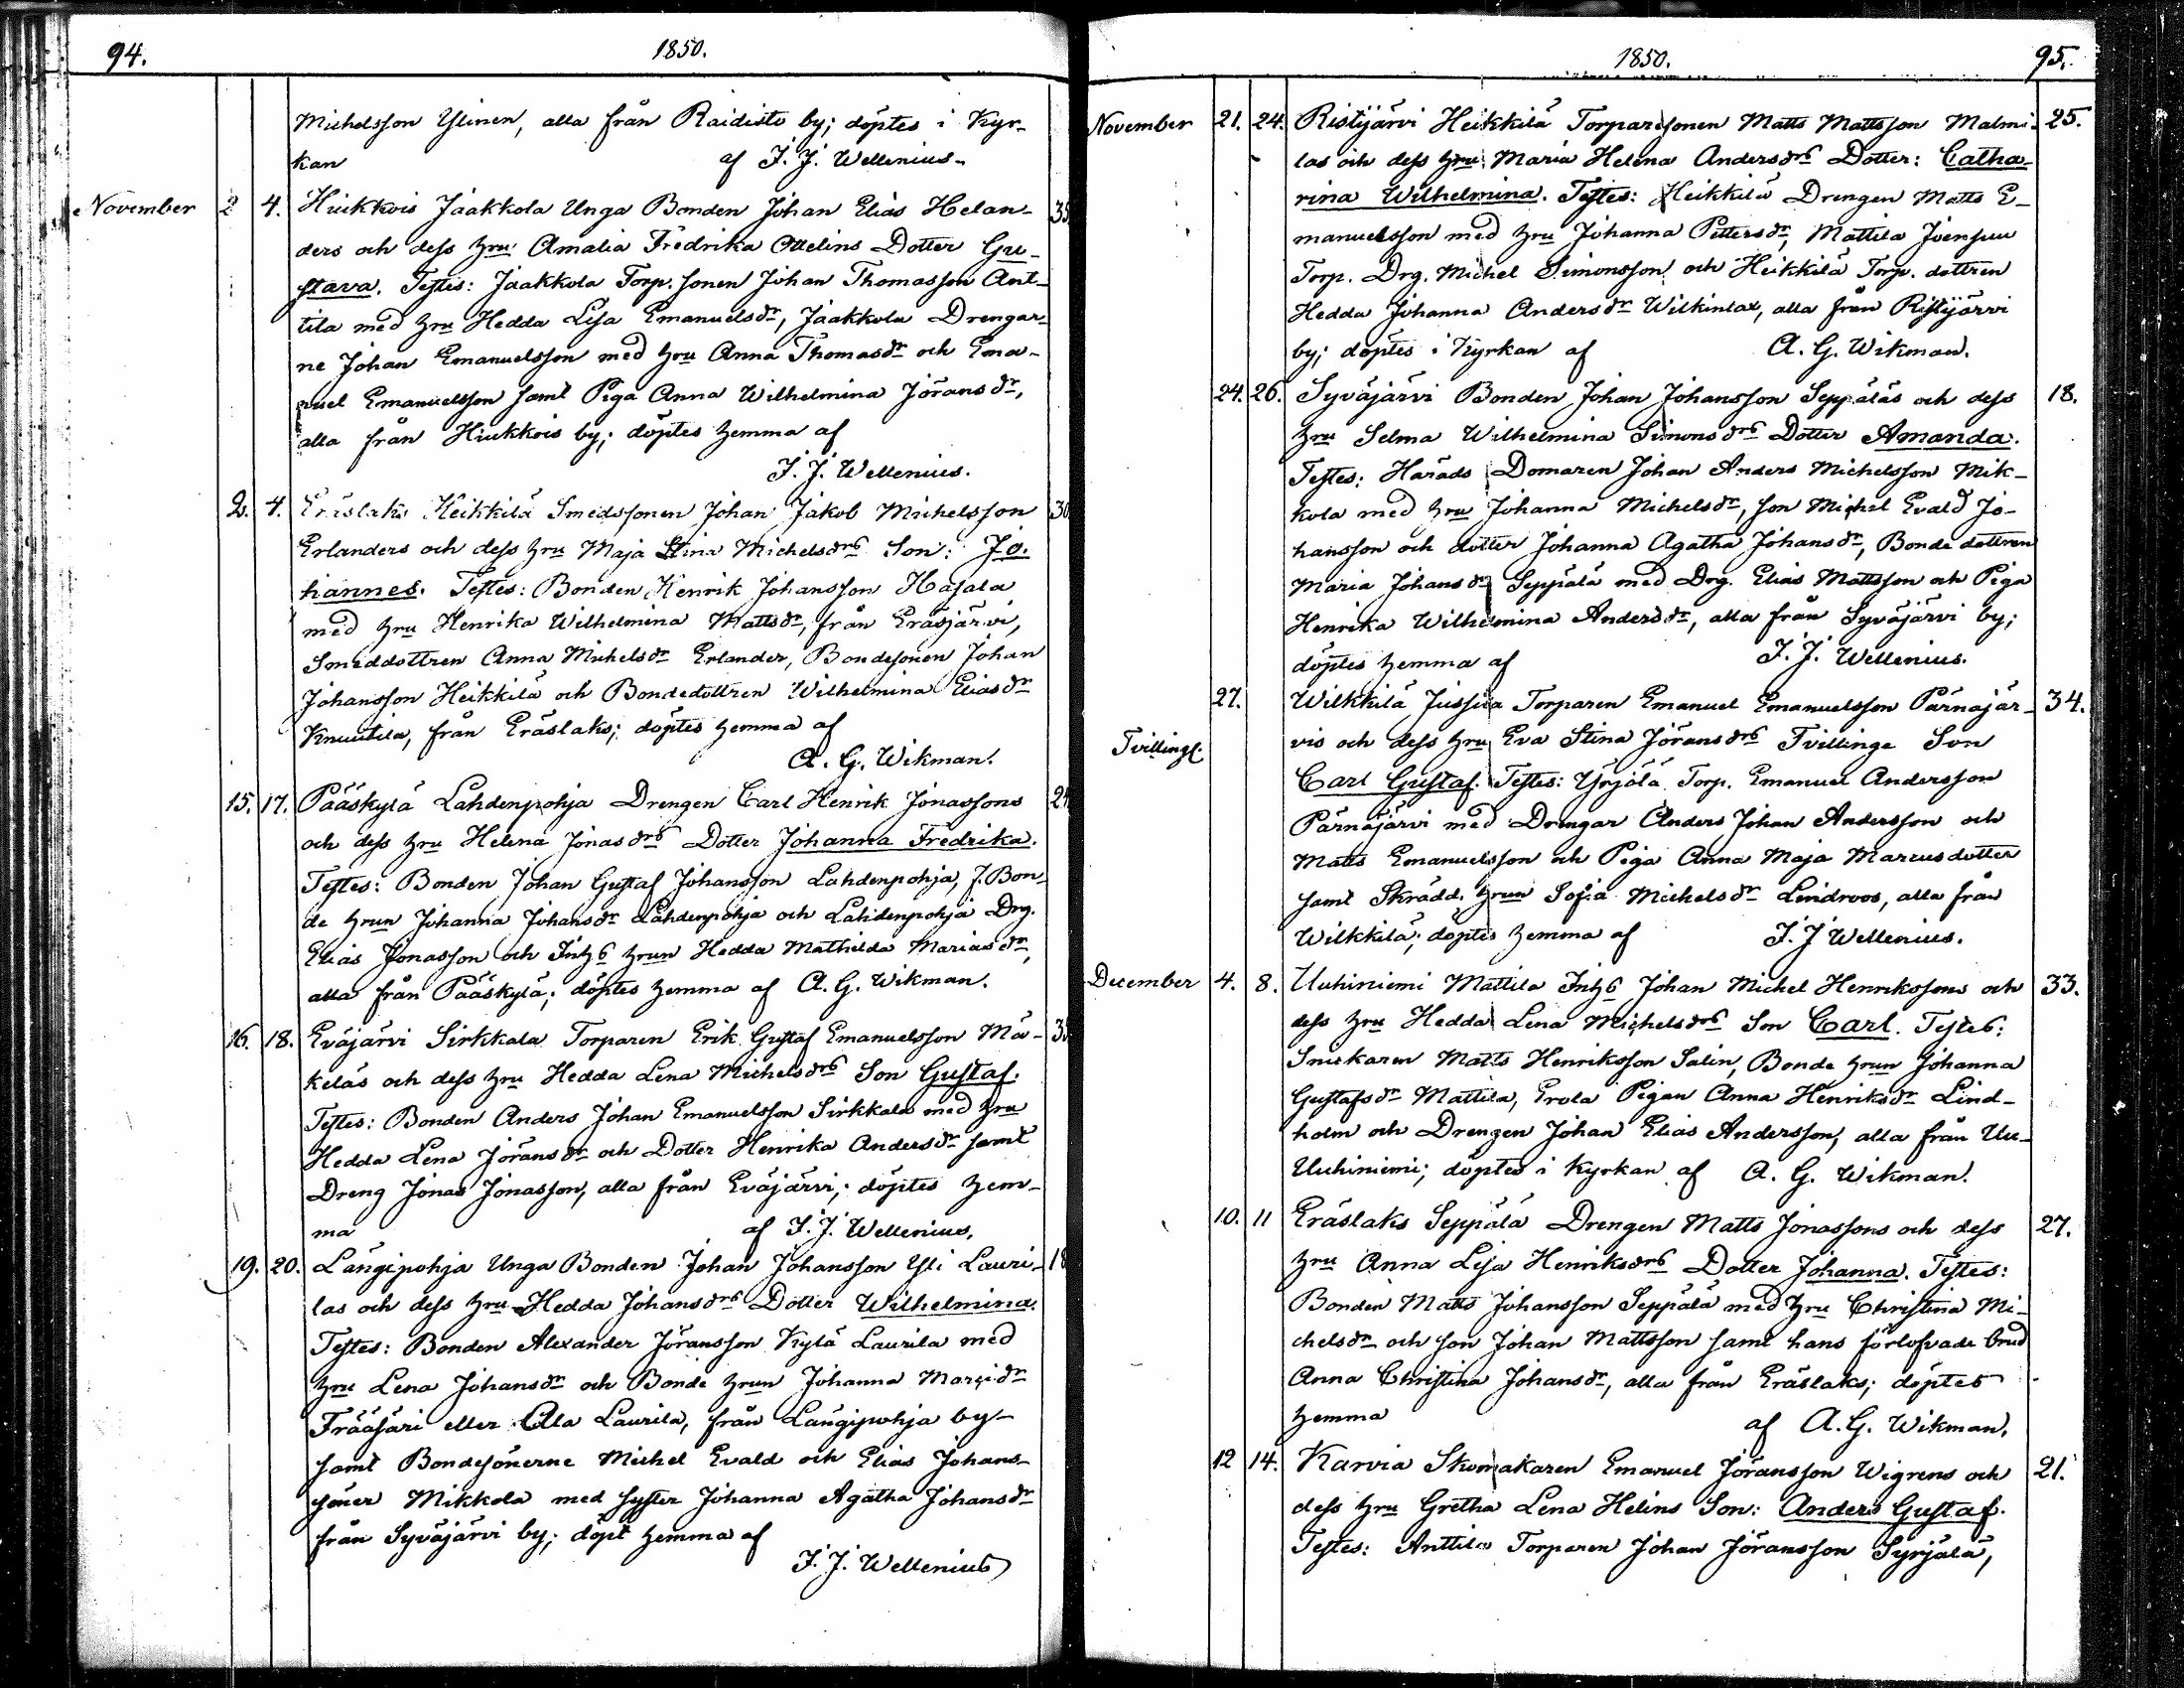 94.
1850.
Michelsson Ylinen, alla från Raidisto by; döptes i Kyr-
kan af F. J. Wellenius.
November 2 4. Hiukkois Jaakkola Unga Bonden Johan Elias Helan- 35
ders och dess hru Amalia Fredrika Ottelins Dotter Gu-
stava. Testes: Jaakkola Torp. sonen Johan Thomasson Ant-
tila med hru Hedda Lisa Emanuelsdr, Jaakkola Drengar-
ne Johan Emanuelsson med hru Anna Thomasdr och Ema-
nuel Emanuelsson samt Piga Anna Wilhelmina Jöransdr,
alla från Hiukkois by; döptes hemma af
F. J. Wellenius.
2. 4. Eräslaks Heikkilä Smedssonen Johan Jakob Michelsson 30
Erlanders och dess hru Maja Stina Michelsdrs Son: Jo-
hannes. Testes: Bonden Henrik Johansson Hasala
med hru Henrika Wilhelmina Mattsdr, från Eräsjärvi,
Smeddottren Anna Michelsdr Erlander, Bondesonen Johan
Johansson Heikkilä och Bondedottren Wilhelmina Eliasdr
Knuutila, från Eräslaks; döptes hemma af
A. G. Wikman.
15. 17. Pääskylä Lahdenpohja Drengen Carl Henrik Jonassons
och dess hru Helena Jonasdrs Dotter Johanna Fredrika.
Testes: Bonden Johan Gustaf Johansson Lahdenpohja, f. Bon-
de hrun Johanna Johansdr Lahdenpohja och Lahdenpohja Drg.
Elias Jonasson och Inhs hrun Hedda Mathilda Mariasdr,
alla från Pääskylä; döptes hemma af A. G. Wikman.
16. 18. Eväjärvi Sirkkala Torparen Erik Gustaf Emanuelsson Mä-
keläs och dess hru Hedda Lena Michelsdrs Son Gustaf.
Testes: Bonden Anders Johan Emanuelsson Sirkkala med hru
Hedda Lena Jöransdr och Dotter Henrika Andersdr samt
Dreng Jonas Jonasson, alla från Eväjärvi; döptes hem-
ma af F. J. Wellenius.
19. 20. Längipohja Unga Bonden Johan Johansson Yli Lauri- 18
las och dess hru Hedda Johansdrs Dotter Wilhelmina.
Testes: Bonden Alexander Jöransson Kylä Laurila med
hru Lena Johansdr och Bonde hrun Johanna Marcidr
Frääsäri eller Ala Laurila, från Längipohja by
samt Bondesönerne Michel Evald och Elias Johans-
söner Mikkola med syster Johanna Agatha Johansdr
från Syväjärvi by; döpt hemma af
F. J. Wellenius
1850.
95.
November 21. 24. Ristijärvi Heikkilä Torparesonen Matts Mattsson Malmi- 25.
las och dess hru Maria Helena Andersdrs Dotter: Catha-
rina Wilhelmina. Testes: Heikkilä Drengen Matts E-
manuelsson med hru Johanna Pettersdr, Mattila Joensuu
Torp. Drg. Michel Simonsson och Heikkilä Torp. dottren
Hedda Johanna Andersdr Wilkinlax, alla från Ristijärvi
by; döptes i Kyrkan af A. G. Wikman.
24. 26. Syväjärvi Bonden Johan Johansson Seppäläs och dess 18.
hru Selma Wilhelmina Simonsdrs Dotter Amanda.
Testes: Härads Domaren Johan Anders Michelsson Mik-
kola med hru Johanna Michelsdr, son Michel Evald Jo-
hansson och dotter Johanna Agatha Johansdr, Bonde dottren
Maria Johansdr Seppälä med Drg. Elias Mattsson och Piga
Henrika Wilhelmina Andersdr, alla från Syväjärvi by;
döptes hemma af F. J. Wellenius.
27. Wilkkilä Jussila Torparen Emanuel Emanuelsson Pärnäjär- 34.
Tvillingf. vis och dess hru Eva Stina Jöransdrs Tvillinge Son
Carl Gustaf. Testes: Yrjölä Torp. Emanuel Andersson
Pärnäjärvi med Drengar Anders Johan Andersson och
Matts Emanuelsson och Piga Anna Maja Marcusdotter
samt Skrädd. hrun Sofia Michelsdr Lindroos, alla från
Wilkkilä; döptes hemma af F. J. Wellenius.
December 4. 8. Uuhiniemi Mattila Inhs Johan Michel Henrikssons och 33.
dess hru Hedda Lena Michelsdrs Son Carl. Testes:
Snickaren Matts Henriksson Salin, Bonde hrun Johanna
Gustafsdr Mattila, Erola Pigan Anna Henriksdr Lind-
holm och Drengen Johan Elias Andersson, alla från Uu-
Uuhiniemi; döptes i Kyrkan af A. G. Wikman.
10. 11 Eräslaks Seppälä Drengen Matts Jonassons och dess 27.
hru Anna Lisa Henriksdrs Dotter Johanna. Testes:
Bonden Matts Johansson Seppälä med hru Christina Mi-
chelsdr och son Johan Mattsson samt hans förlofvade brud
Anna Christina Johansdr, alla från Eräslaks; döptes
hemma af A. G. Wikman.
12 14. Karvia Skomakaren Emanuel Jöransson Wigrens och 21.
dess hru Gretha Lena Helins Son: Anders Gustaf.
Testes: Anttila Torparen Johan Jöransson Syrjälä,